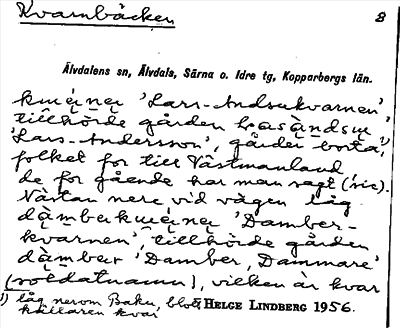 Kvarnbäcken 8
Älvdalens sn, Älvdals, Särna o. Idre tg, Kopparbergs län.
'Lars-Andsukvarnen',
tillhörde gården
'Lars-Andersson', gården borta,¹)
folket for till Västmanland
de for gående har man sagt (sic).
Nästan nere vid vägen låg
'Damber-
kvarnen', tillhörde gården
'Damber, Dammare'
(soldatnamn), vilken är kvar
¹) låg nerom Baku, blott
källaren kvar
HELGE LINDBERG 1956.